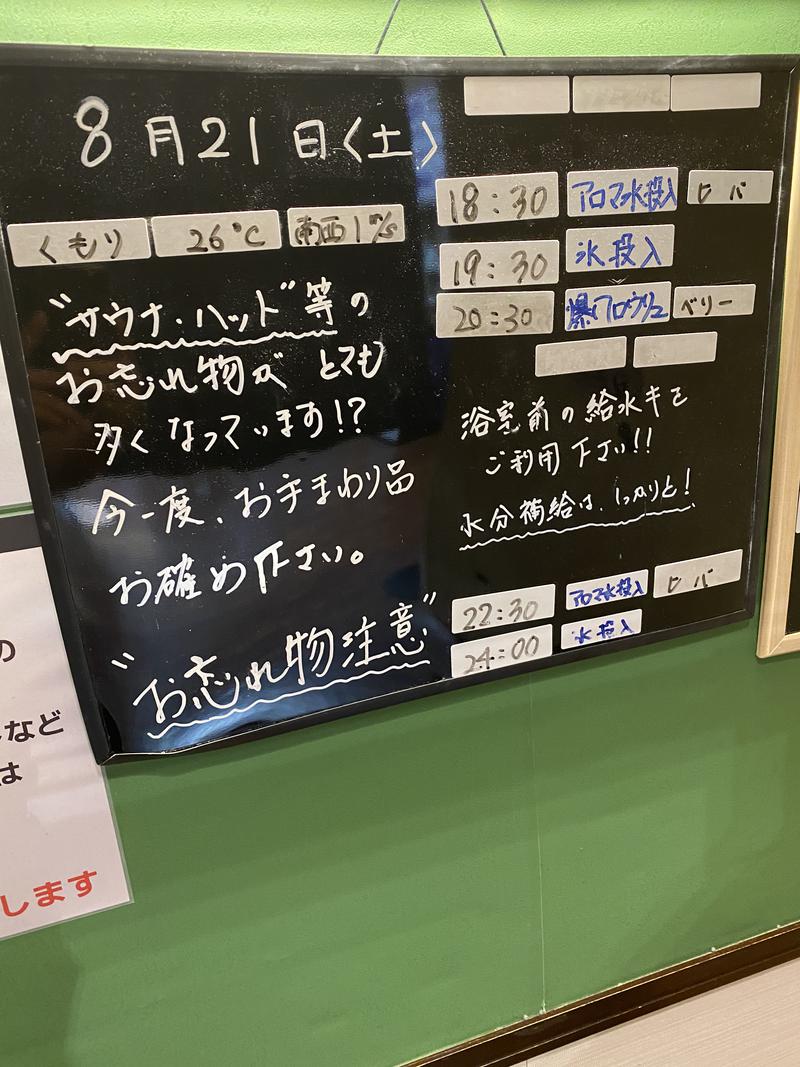 8月21日〈土〉
くもり 26℃ 南西1m/s
"サウナ・ハット"等の
お忘れ物が とても
多くなっています!?
今一度、お手まわり品
お確め下さい。
"お忘れ物注意"
18:30 アロマ水投入 ロバ
19:30 氷投入
20:30 爆アロウリュ ベリー
浴室前の給水キを
ご利用下さい!!
水分補給は、しっかりと!
22:30 アロマ水投入 ロバ
24:00 氷投入
の
など
は
します